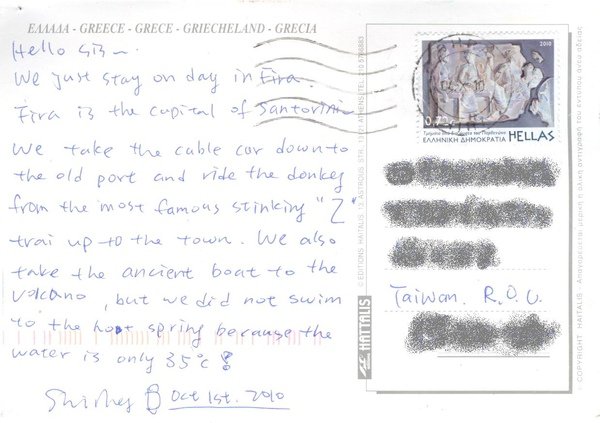 ΕΛΛΑΔΑ - GREECE - GRECE - GRIECHELAND - GRECIA
Hello Sis~
We just stay on day in Fira.
Fira is the capital of Santorini
We take the cable car down to
the old port and ride the donkey
from the most famous stinking "Z"
trai up to the town. We also
take the ancient boat to the
volcano, but we did not swim
to the hot spring because the
water is only 35°C!
Shirley Oct 1st. 2010
2010
0,72€
HELLAS
ΕΛΛΗΝΙΚΗ ΔΗΜΟΚΡΑΤΙΑ
Taiwan. R.O.C.
HAITALIS
© EDITIONS HAITALIS
COPYRIGHT HAITALIS - Απαγορεύεται μερική ή ολική αντιγραφή του εντύπου άνευ αδείας